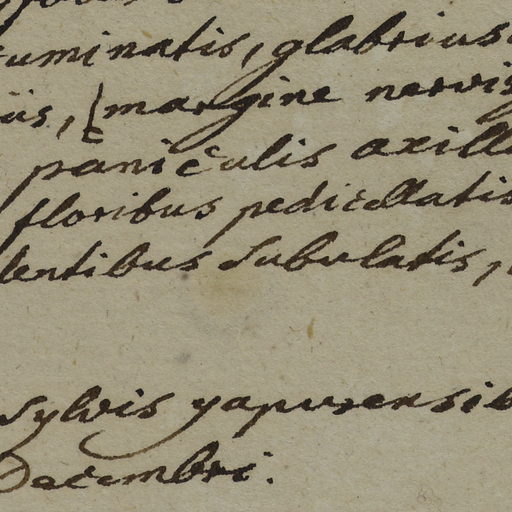 uminatis, glabrius
iis, margine nervis
paniculis axill
floribus pedicellatis
dentibus subulatis,
sylvis yapurensib
Decembri.